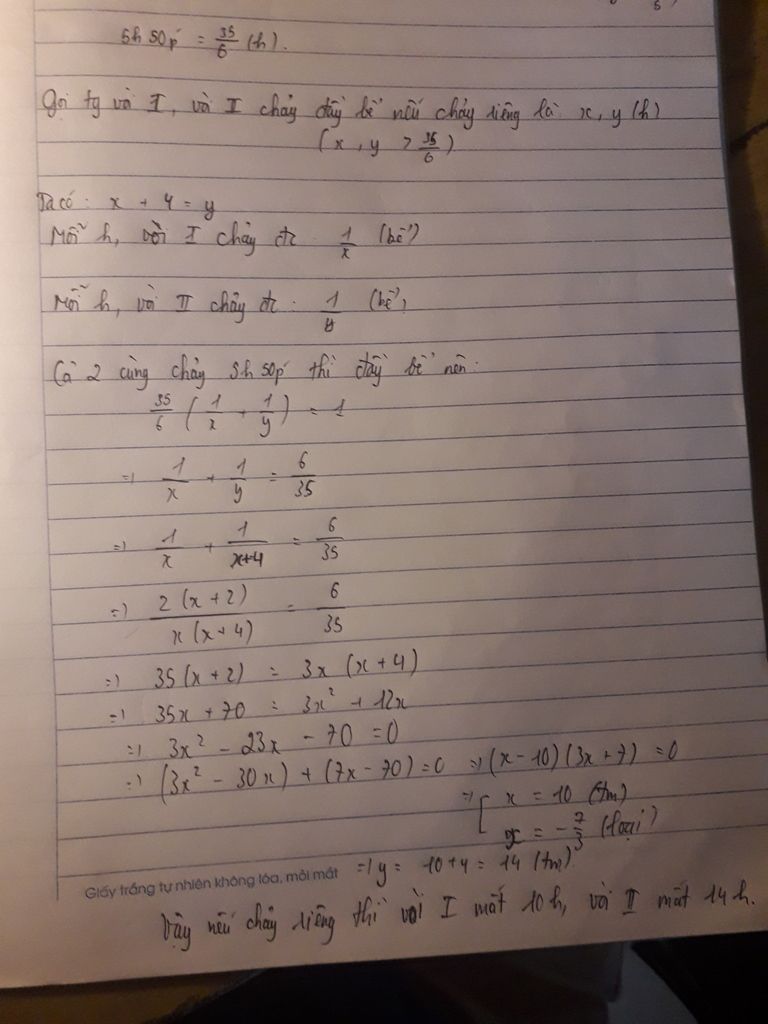 5h 50p' = 35/6 (h).
Gọi tg vòi I, vòi II chảy đầy bể nếu chảy riêng là: x, y (h)
(x, y > 35/6)
Ta có: x + 4 = y
Mỗi h, vòi I chảy đc : 1/x (bể)
Mỗi h, vòi II chảy đc : 1/y (bể)
Cả 2 cùng chảy 5h 50p' thì đầy bể nên:
35/6 (1/x + 1/y) = 1
=> 1/x + 1/y = 6/35
=> 1/x + 1/(x+4) = 6/35
=> 2(x+2)/x(x+4) = 6/35
=> 35(x+2) = 3x(x+4)
=> 35x + 70 = 3x² + 12x
=> 3x² - 23x - 70 = 0
=> (3x² - 30x) + (7x - 70) = 0 => (x-10)(3x+7) = 0
=> [ x = 10 (tm)
x = -7/3 (loại)
=> y = 10+4 = 14 (tm).
Giấy trắng tự nhiên không lóa, mỏi mắt
Vậy nếu chảy riêng thì vòi I mất 10h, vòi II mất 14h.